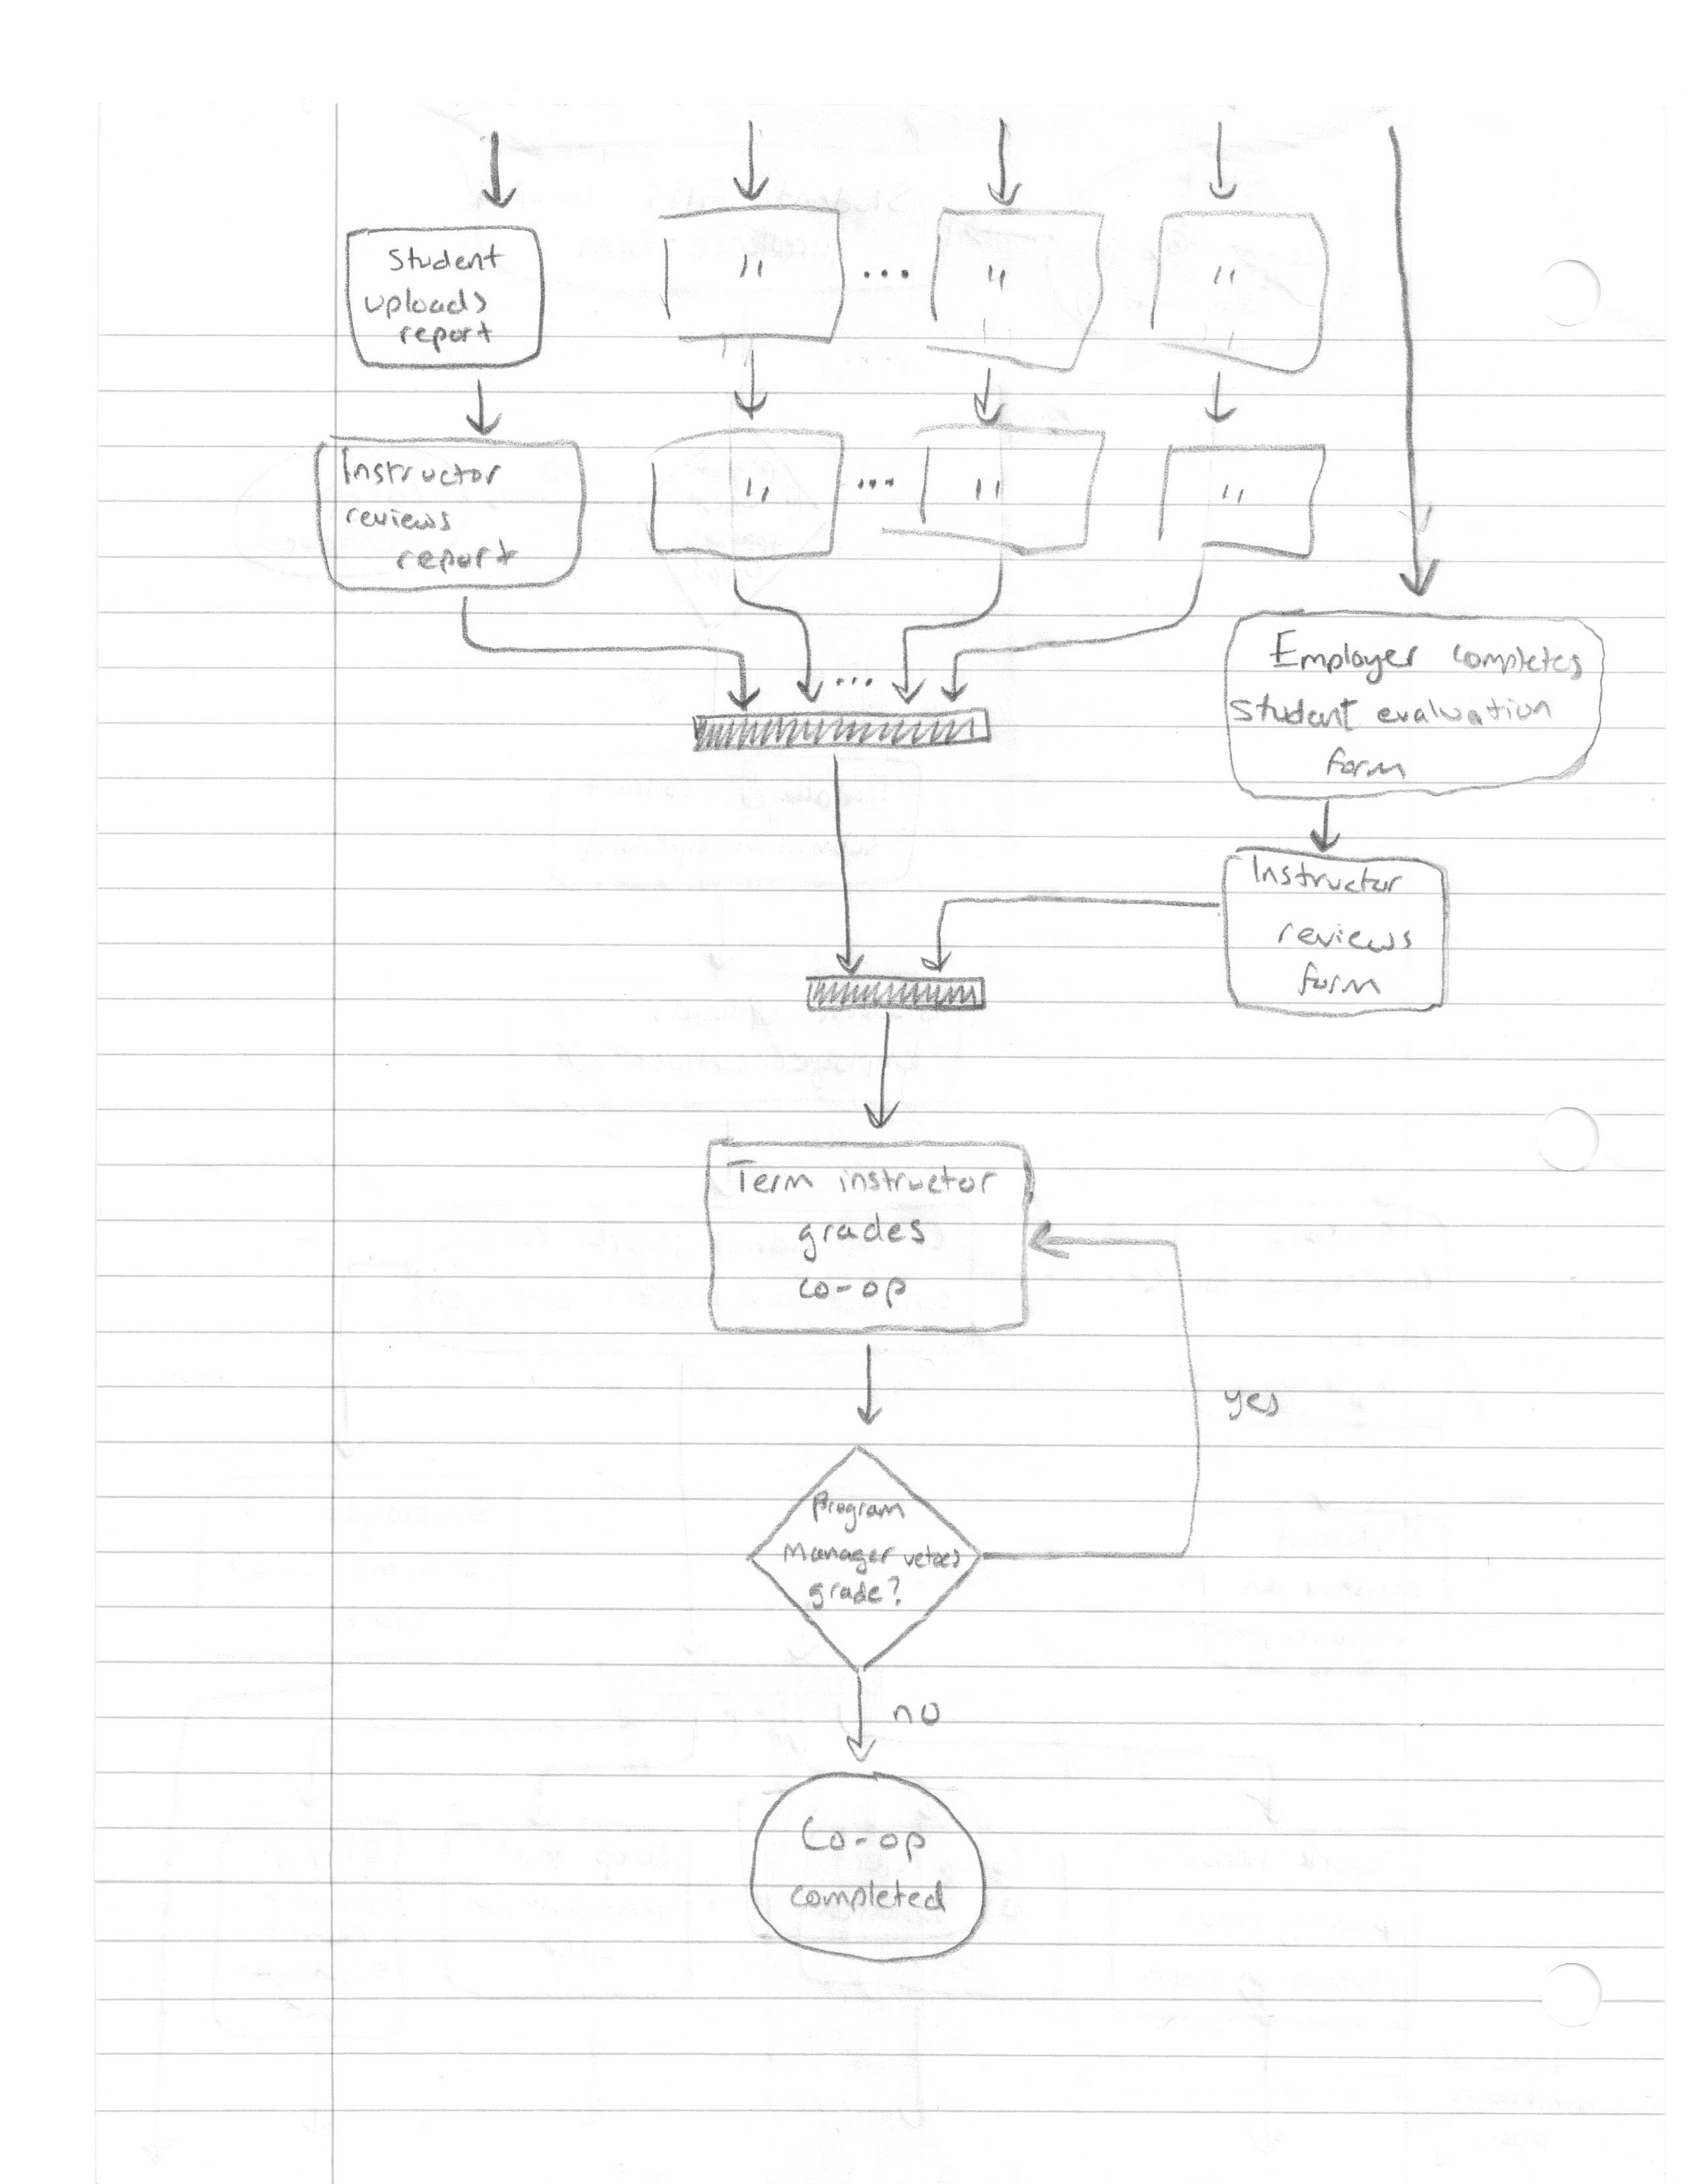 Student
uploads
report
"
...
"
"
Instructor
reviews
report
"
...
"
"
...
Employer completes
student evaluation
form
Instructor
reviews
form
Term instructor
grades
co-op
yes
Program
Manager vetoes
grade?
no
Co-op
completed